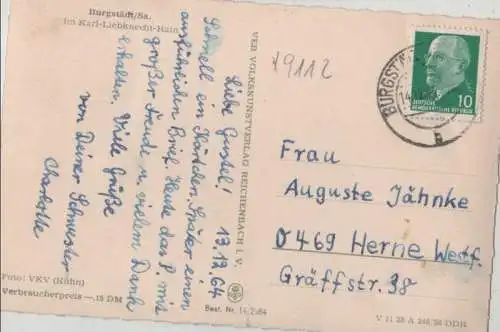 Burgstädt/Sa.
im Karl-Liebknecht-Hain
Liebe Gustel! 13.12.64
Schnell ein Kärtchen. Später einen
ausführlichen Brief. Heute das P. mit
großer Freude u. vielem Dank
erhalten. Viele Grüße
von Deiner Schwester
Charlotte
Foto: VKV (Kühn)
Verbraucherpreis —,15 DM
VEB VOLKSKUNSTVERLAG REICHENBACH I. V.
Best. Nr. 14/2484
49112
BURGSTÄDT
b
DEUTSCHE
DEMOKRATISCHE REPUBLIK
10
Frau
Auguste Jähnke
0 469 Herne Westf.
Gräffstr. 38
V 11 28 A
DDR